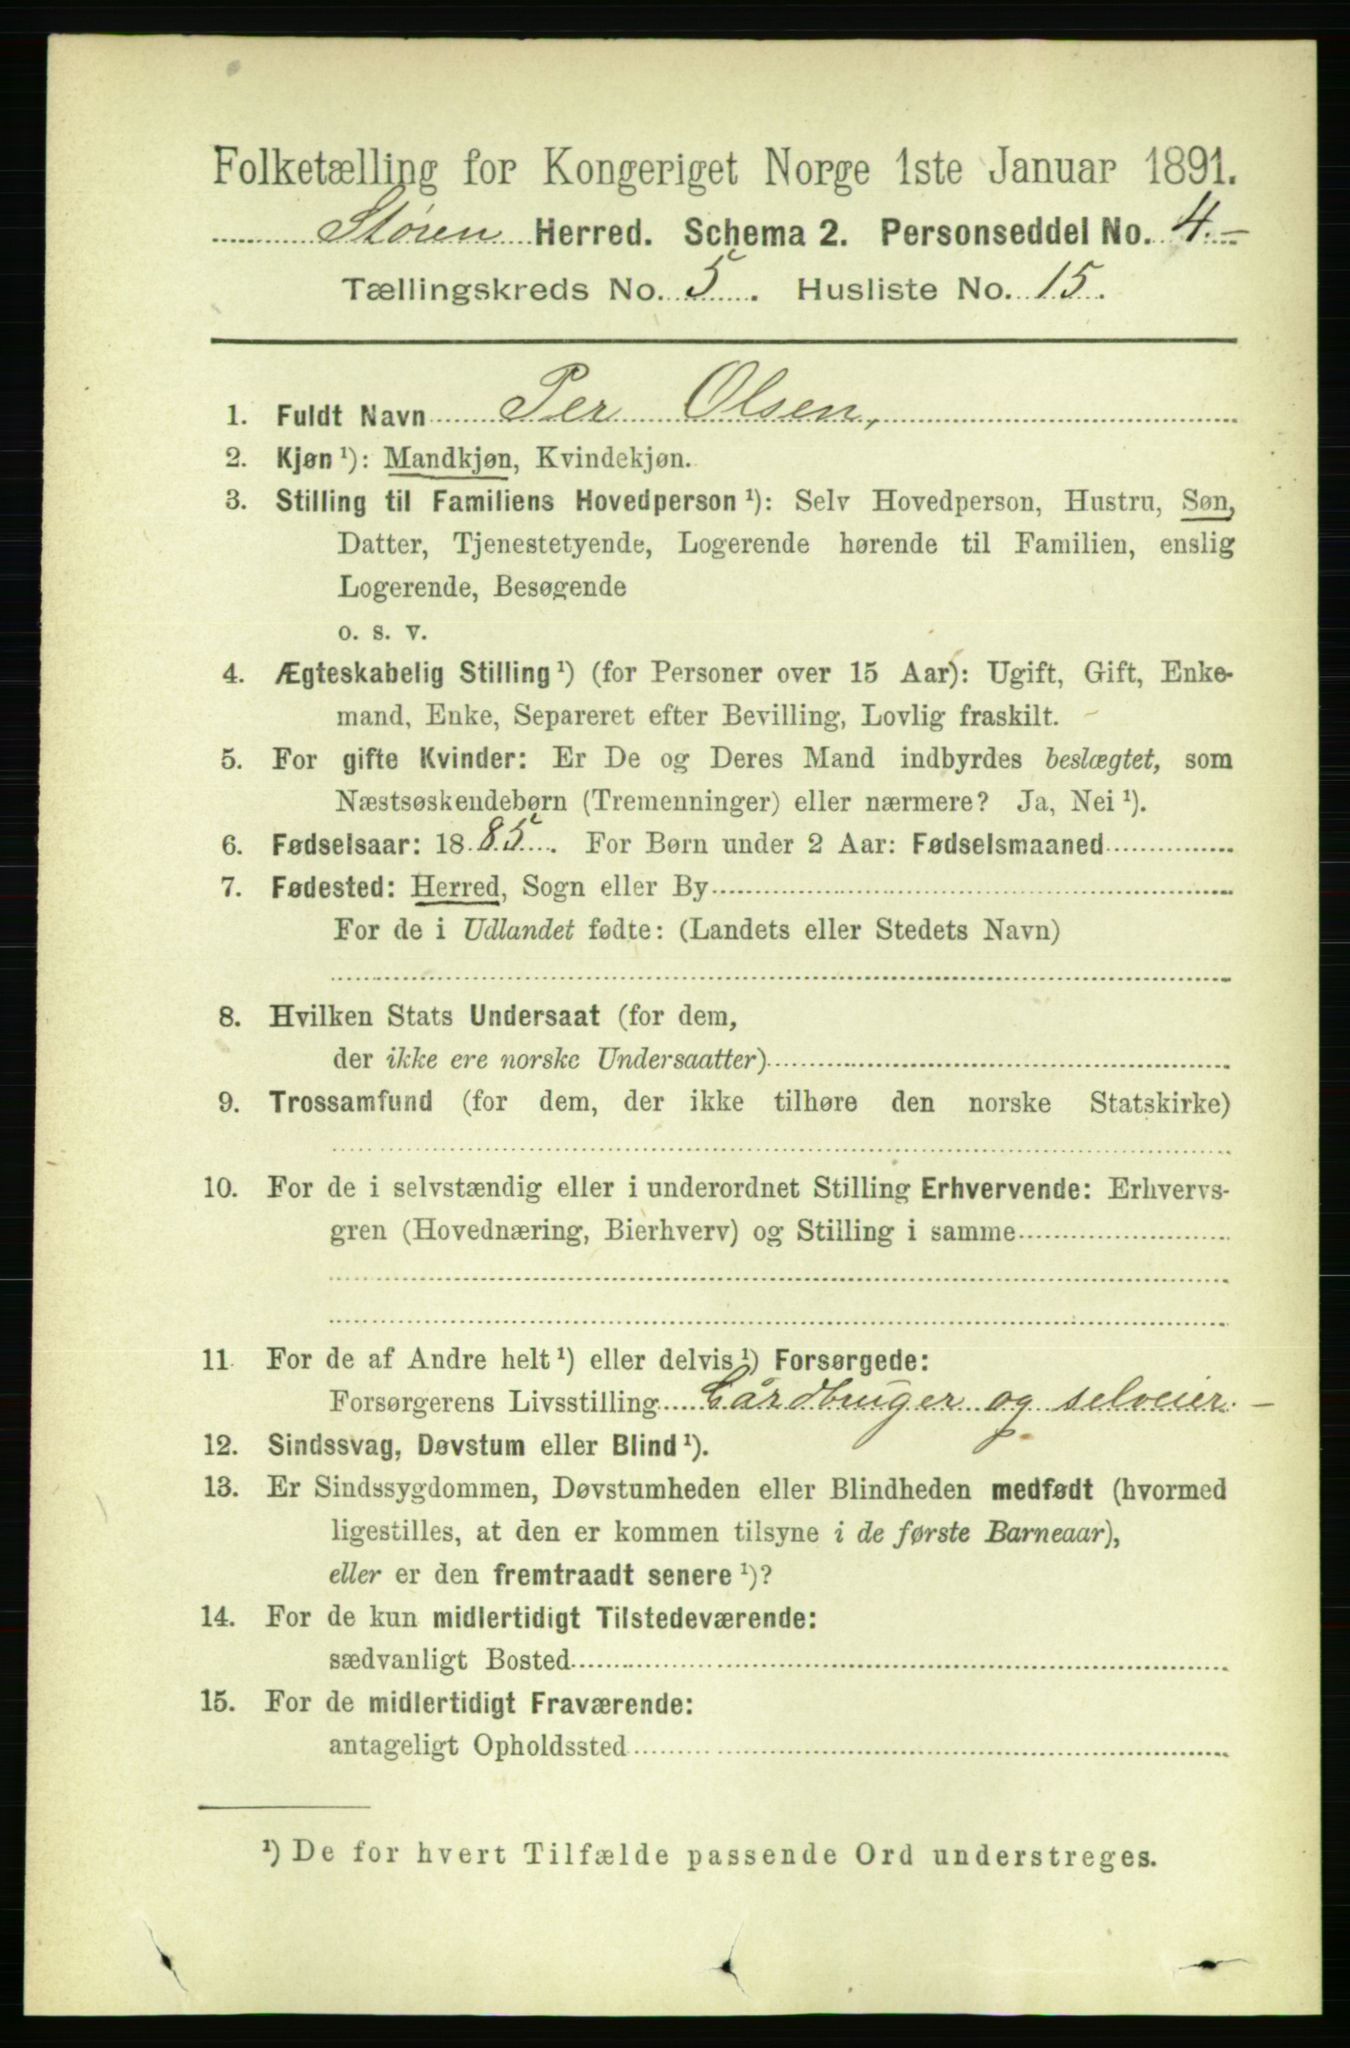 Folketælling for Kongeriget Norge 1ste Januar 1891.
Støren Herred. Schema 2. Personseddel No. 4.-
Tællingskreds No. 5. Husliste No. 15.
1. Fuldt Navn Per Olsen,
2. Kjøn ¹): Mandkjøn, Kvindekjøn.
3. Stilling til Familiens Hovedperson ¹): Selv Hovedperson, Hustru, Søn,
Datter, Tjenestetyende, Logerende hørende til Familien, enslig
Logerende, Besøgende
o. s. v.
4. Ægteskabelig Stilling ¹) (for Personer over 15 Aar): Ugift, Gift, Enke-
mand, Enke, Separeret efter Bevilling, Lovlig fraskilt.
5. For gifte Kvinder: Er De og Deres Mand indbyrdes beslægtet, som
Næstsøskendebørn (Tremenninger) eller nærmere? Ja, Nei ¹).
6. Fødselsaar: 1885. For Børn under 2 Aar: Fødselsmaaned
7. Fødested: Herred, Sogn eller By
For de i Udlandet fødte: (Landets eller Stedets Navn)
8. Hvilken Stats Undersaat (for dem,
der ikke ere norske Undersaatter)
9. Trossamfund (for dem, der ikke tilhøre den norske Statskirke)
10. For de i selvstændig eller i underordnet Stilling Erhvervende: Erhvervs-
gren (Hovednæring, Bierhverv) og Stilling i samme
11. For de af Andre helt ¹) eller delvis ¹) Forsørgede:
Forsørgerens Livsstilling Gårdbruger og selveier. -
12. Sindssvag, Døvstum eller Blind ¹).
13. Er Sindssygdommen, Døvstumheden eller Blindheden medfødt (hvormed
ligestilles, at den er kommen tilsyne i de første Barneaar),
eller er den fremtraadt senere ¹)?
14. For de kun midlertidigt Tilstedeværende:
sædvanligt Bosted
15. For de midlertidigt Fraværende:
antageligt Opholdssted
¹) De for hvert Tilfælde passende Ord understreges.